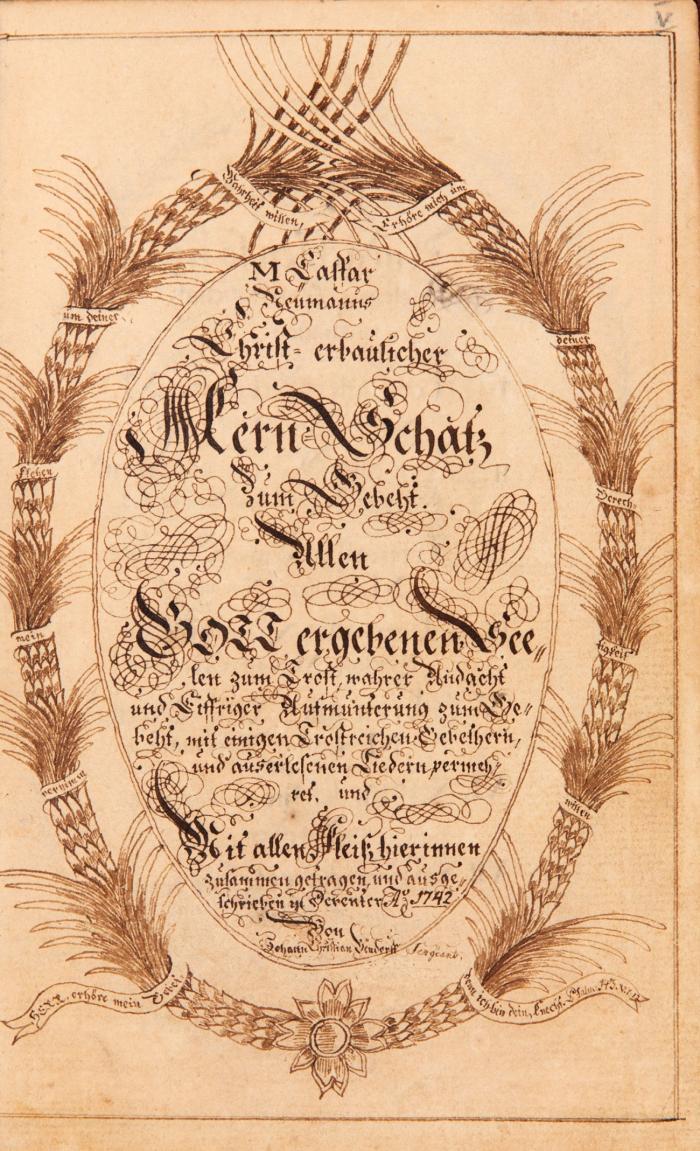 V
Wahrheit willen,
Erhöre mich um
um deiner
deiner
flehen
Gerech-
mein
tigkeit
vernimm
willen
HERR, erhöre mein Gebet
denn ich bin dein, Knecht. Psalm 143. v. 1.
M Caspar
Neümanns
Christ- erbaulicher
Kern Schatz
Zum Gebeht.
Allen
GOTT ergebenen See„
len zum Trost, wahrer Andacht
und Eiffriger Aufmunterung zum Ge-
beht, mit einigen Trostreichen Gebethern,
und auserlesenen Liedern vermeh,
ret, und
Mit allen Fleiß hierinnen
zusammen getragen, und ausge-
schrieben in Deventer Aº 1742
Von
Johann Christian Sergeant.